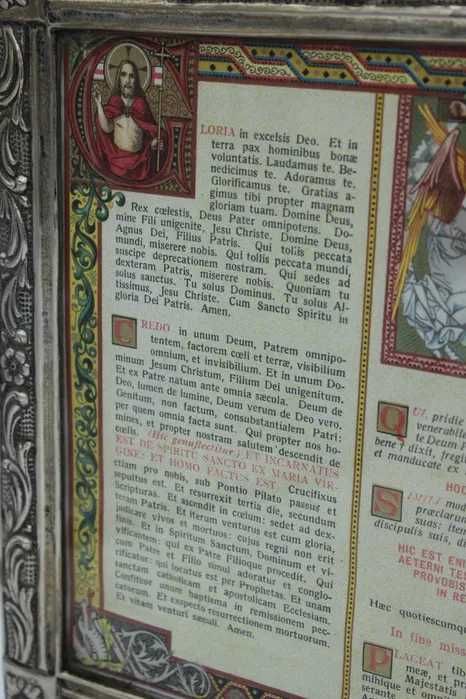 GLORIA in excelsis Deo. Et in
terra pax hominibus bonæ
voluntatis. Laudamus te. Be-
nedicimus te. Adoramus te.
Glorificamus te. Gratias a-
gimus tibi propter magnam
gloriam tuam. Domine Deus,
Rex cœlestis, Deus Pater omnipotens. Do-
mine Fili unigenite, Jesu Christe. Domine Deus,
Agnus Dei, Filius Patris. Qui tollis peccata
mundi, miserere nobis. Qui tollis peccata mundi,
suscipe deprecationem nostram. Qui sedes ad
dexteram Patris, miserere nobis. Quoniam tu
solus sanctus. Tu solus Dominus. Tu solus Al-
tissimus, Jesu Christe. Cum Sancto Spiritu in
gloria Dei Patris. Amen.
CREDO in unum Deum, Patrem omnipo-
tentem, factorem cœli et terræ, visibilium
omnium, et invisibilium. Et in unum Do-
minum Jesum Christum, Filium Dei unigenitum.
Et ex Patre natum ante omnia sæcula. Deum de
Deo, lumen de lumine, Deum verum de Deo vero.
Genitum, non factum, consubstantialem Patri:
per quem omnia facta sunt. Qui propter nos ho-
mines, et propter nostram salutem descendit de
cœlis. (Hic genuflectitur) ET INCARNATUS
EST DE SPIRITU SANCTO EX MARIA VIR-
GINE: ET HOMO FACTUS EST. Crucifixus
etiam pro nobis, sub Pontio Pilato passus et
sepultus est. Et resurrexit tertia die, secundum
Scripturas. Et ascendit in cœlum: sedet ad dex-
teram Patris. Et iterum venturus est cum gloria,
judicare vivos et mortuos: cujus regni non erit
finis. Et in Spiritum Sanctum, Dominum et vi-
vificantem: qui ex Patre Filioque procedit. Qui
cum Patre et Filio simul adoratur et conglo-
rificatur: qui locutus est per Prophetas. Et unam
sanctam catholicam et apostolicam Ecclesiam.
Confiteor unum baptisma in remissionem pec-
catorum. Et exspecto resurrectionem mortuorum.
Et vitam venturi sæculi. Amen.
QUI pridie
venerabile
te Deum
bene † dixit, fregit
et manducate ex
HOC
SIMILI modo
præclarum
suas: item
discipulis suis, di
HIC EST ENI
AETERNI TE
PRO VOBIS
IN RE
Hæc quotiescumque
In fine miss
PLACEAT tibi
meæ, et pr
Majestatis
minique et omni
serante sit